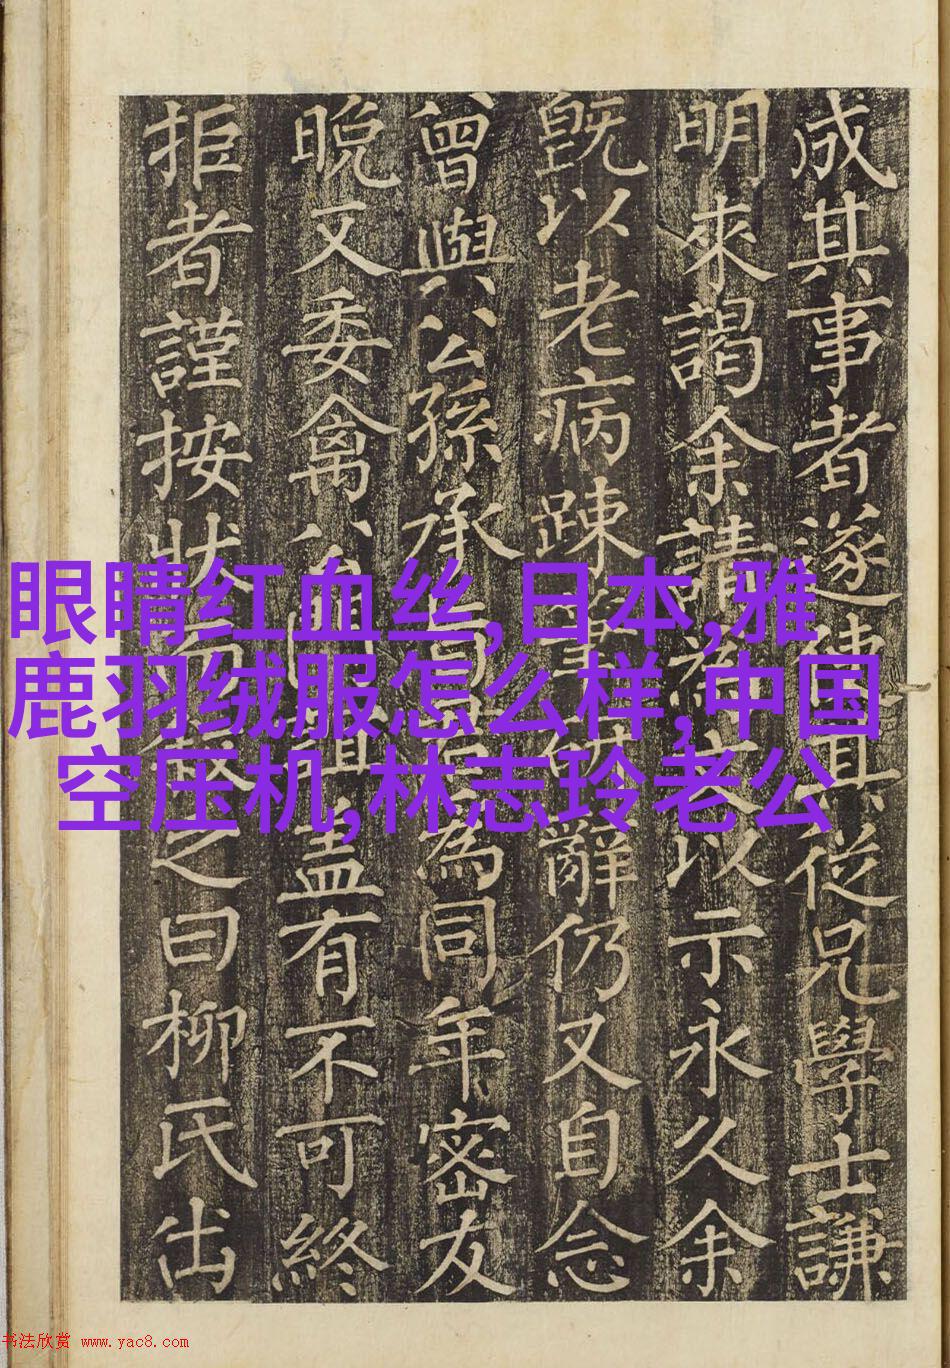 成其事者遂其從兄學士謙
明來謁余請為文以示永久余
既以老病踈辭仍又自念
曾與公孫承為同年密友
晚又委禽公門盖有不可終
拒者謹按狀之曰柳氏出
眼睛红血丝,日本,雅
鹿羽绒服怎么样,中国
空压机,林志玲老公
书法欣赏 www.yac8.com